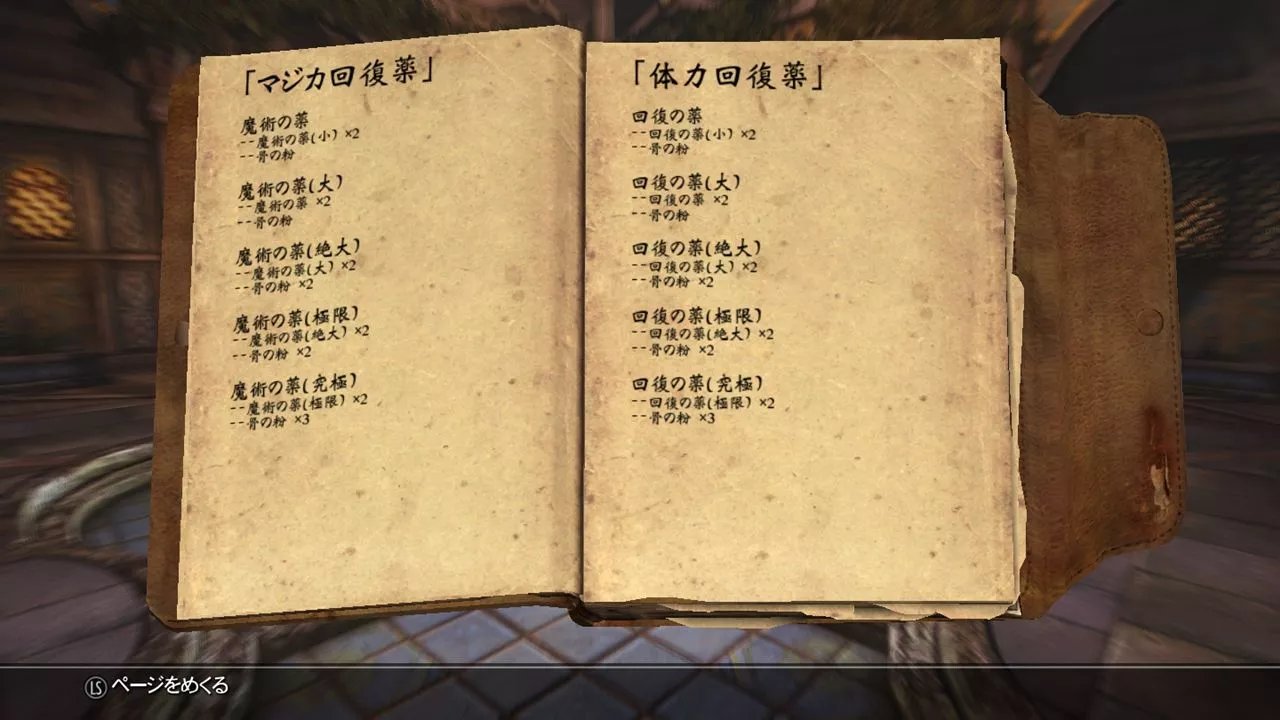 「マジカ回復薬」
魔術の薬
--魔術の薬(小) ×2
--骨の粉
魔術の薬(大)
--魔術の薬 ×2
--骨の粉
魔術の薬(絶大)
--魔術の薬(大) ×2
--骨の粉 ×2
魔術の薬(極限)
--魔術の薬(絶大) ×2
--骨の粉 ×2
魔術の薬(究極)
--魔術の薬(極限) ×2
--骨の粉 ×3
「体力回復薬」
回復の薬
--回復の薬(小) ×2
--骨の粉
回復の薬(大)
--回復の薬 ×2
--骨の粉
回復の薬(絶大)
--回復の薬(大) ×2
--骨の粉 ×2
回復の薬(極限)
--回復の薬(絶大) ×2
--骨の粉 ×2
回復の薬(究極)
--回復の薬(極限) ×2
--骨の粉 ×3
LS ページをめくる